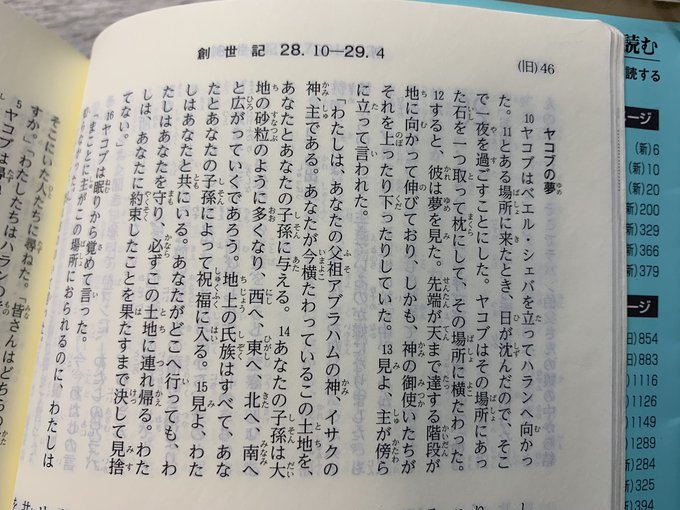 創世記 28.10―29.4
(旧)46
ヤコブの夢
10ヤコブはベエル・シェバを立ってハランへ向かっ
た。11とある場所に来たとき、日が沈んだので、そこ
で一夜を過ごすことにした。ヤコブはその場所にあっ
た石を一つ取って枕にして、その場所に横たわった。
12すると、彼は夢を見た。先端が天まで達する階段が
地に向かって伸びており、しかも、神の御使いたちが
それを上ったり下ったりしていた。13見よ、主が傍ら
に立って言われた。
「わたしは、あなたの父祖アブラハムの神、イサクの
神、主である。あなたが今横たわっているこの土地を、
あなたとあなたの子孫に与える。14あなたの子孫は大
地の砂粒のように多くなり、西へ、東へ、北へ、南へ
と広がっていくであろう。地上の氏族はすべて、あな
たとあなたの子孫によって祝福に入る。15見よ、わた
しはあなたと共にいる。あなたがどこへ行っても、わ
たしはあなたを守り、必ずこの土地に連れ帰る。わた
しは、あなたに約束したことを果たすまで決して見捨
てない。」
16ヤコブは眠りから覚めて言った。
「まことに主がこの場所におられるのに、わたしは
そこにいた人たちに尋ねた。「皆さんはどちらの
すか。」「わたしたちはハランの
5ヤコブは
読む
読する
ージ
(新)6
(新)10
(新)20
(新)200
(新)329
(新)366
(新)379
ージ
旧)854
旧)883
)1116
)1126
)1149
)1289
)284
新)325
新)394